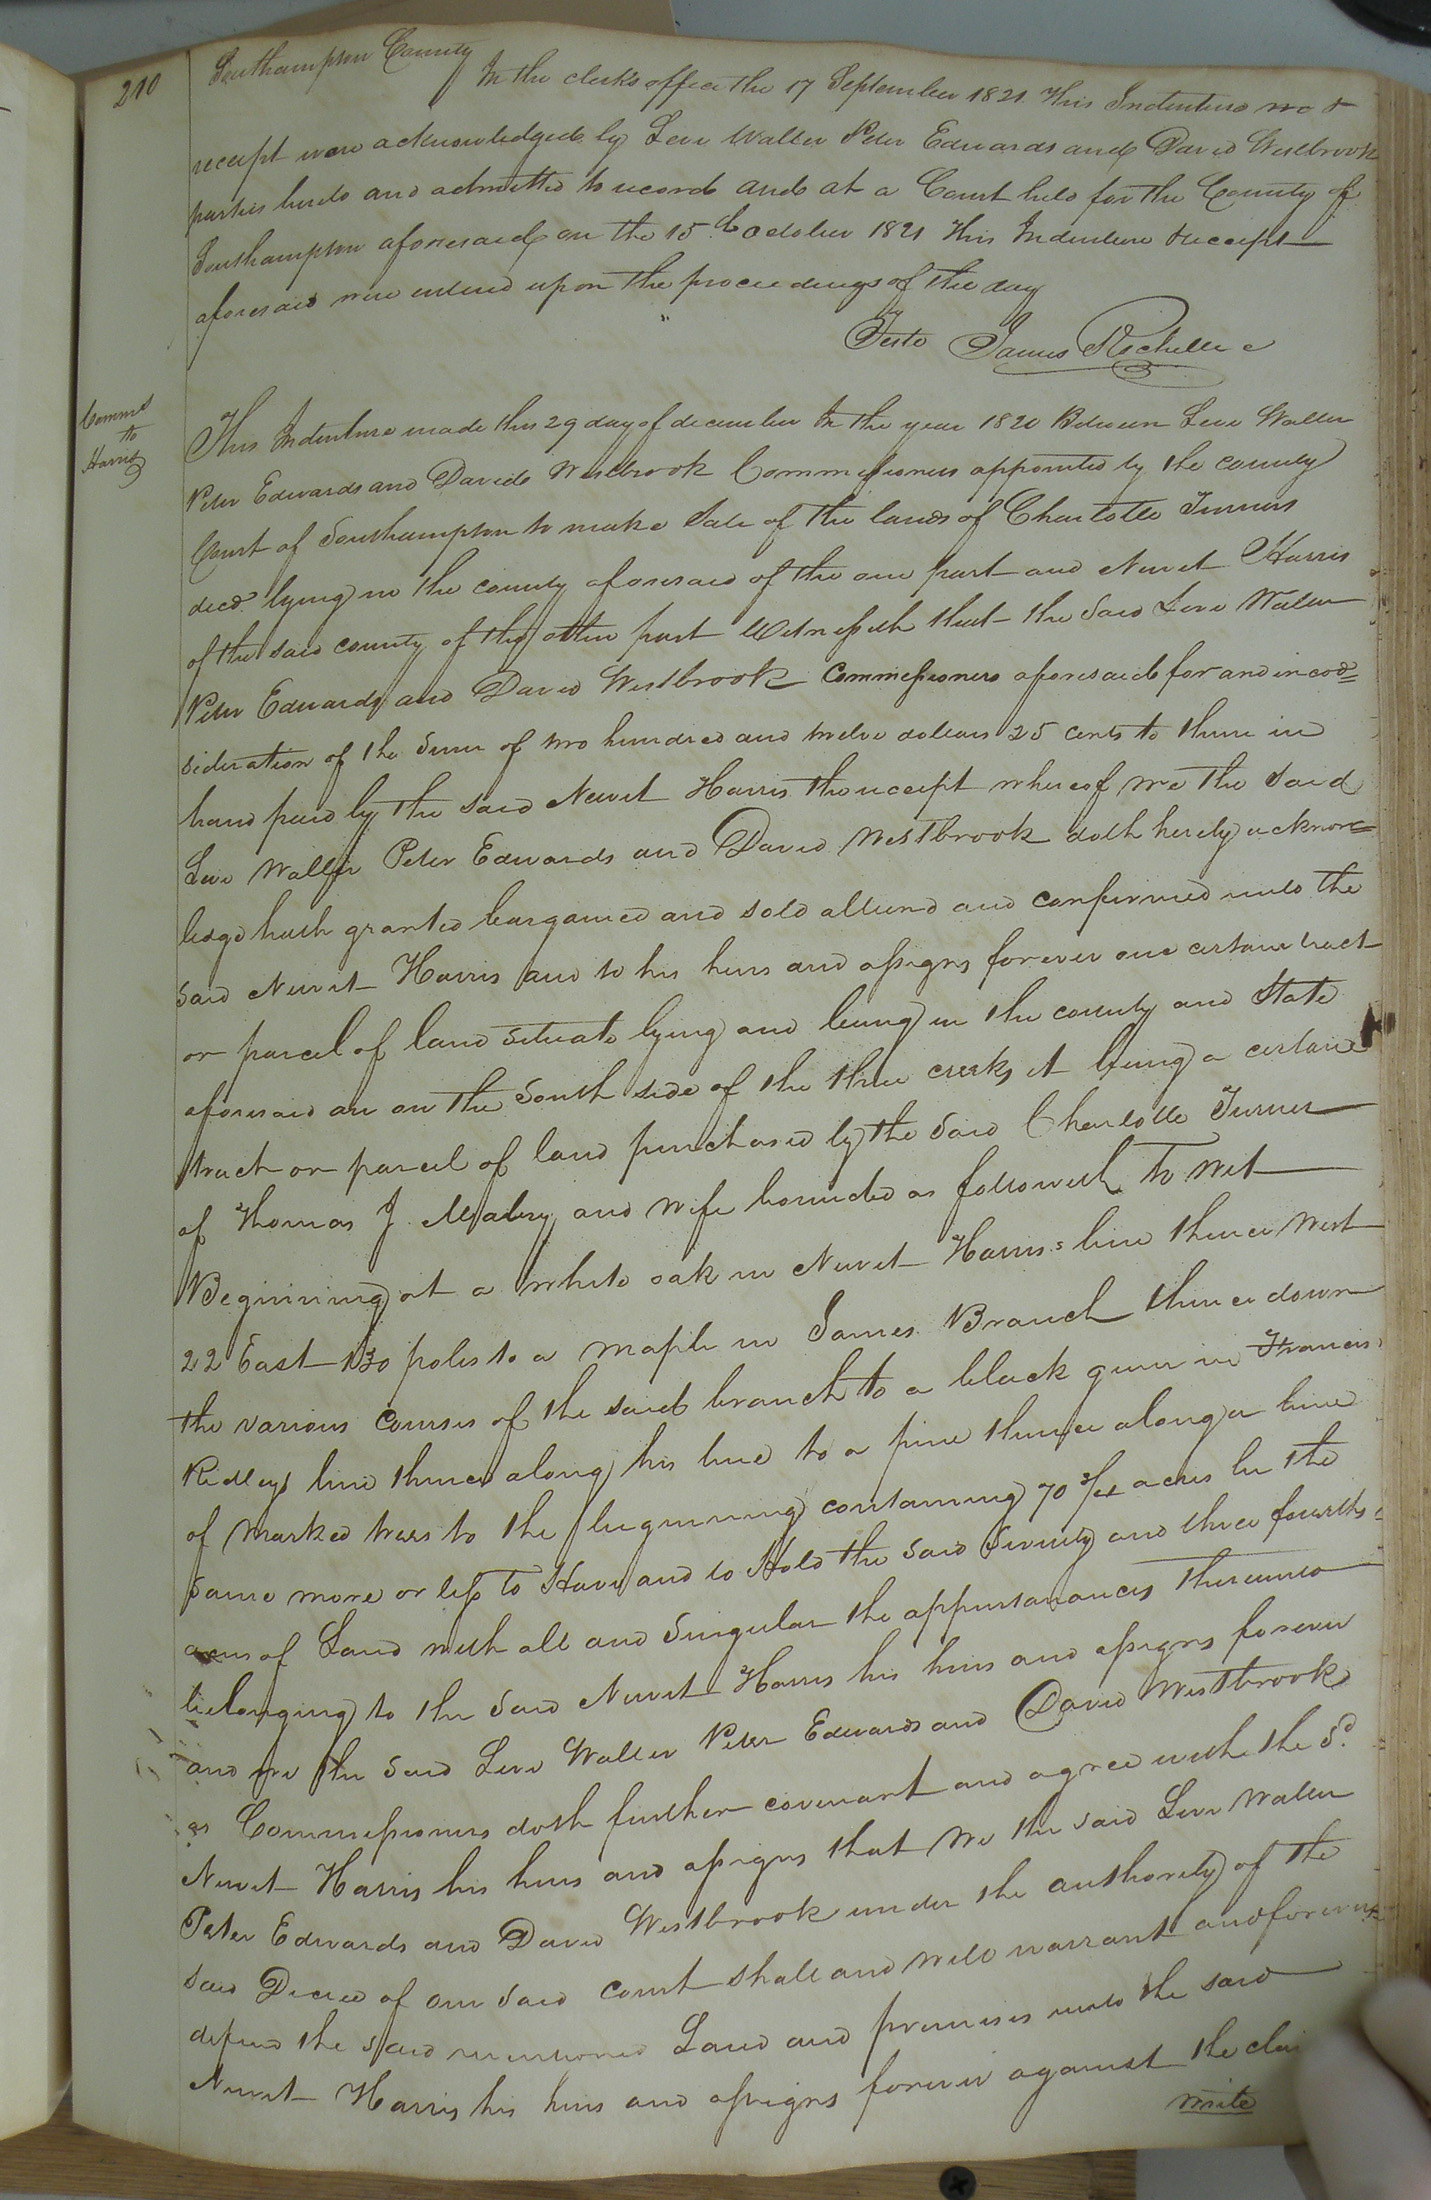 210
Southampton County
In the clerks office the 17 September 1821 This Indenture
receipt were acknowledged by Levi Waller Peter Edwards and David Westbrook
parties hereto and admitted to record and at a Court held for the County of
Southampton aforesaid on the 15th October 1821 This Indenture & receipt
aforesaid were entered upon the proceedings of the day
Teste James Rochelle c
Comms
to
Harris
This Indenture made this 29 day of december In the year 1820 Between Levi Waller
Peter Edwards and David Westbrook Commissioners appointed by the county
Court of Southampton to make Sale of the lands of Charlotte Turners
decd. lying in the county aforesaid of the one part and Newit Harris
of the said county of the other part Witnesseth that the Said Levi Waller
Peter Edwards and David Westbrook Commissioners aforesaid for and in con=
sideration of the Sum of two hundred and twelve dollars 25 cents to them in
hand paid by the said Newit Harris the receipt whereof we the Said
Levi Waller Peter Edwards and David Westbrook doth hereby acknow=
ledge hath granted bargained and sold aliend and confirmed unto the
Said Newit Harris and to his heirs and assigns forever one certain tract
or parcel of land situate lying and being in the county and State
aforesaid an on the South side of the three creeks it being a certain
tract or parcel of land purchased by the Said Charlotte Turner
of Thomas J. Mabry and wife bounded as followeth To Wit
Beginning at a white oak in Newit Harris's line thence West
22 East 130 poles to a maple in James Branch thence down
the various Courses of the said branch to a black gum in Francis
Ridleys line thence along his line to a pine thence along a line
of Marked trees to the beginning containing 70 3/4 acres be the
Same more or less To Have and to Hold the Said Seventy and three fourths
acres of Land with all and Singular the appurtanances thereunto
belonging to the Said Newit Harris his heirs and assigns forever
and we the Said Levi Waller Peter Edwards and David Westbrook
as Commissioners doth further covenant and agree with the Sd.
Newit Harris his heirs and assigns that We the said Levi Waller
Peter Edwards and David Westbrook under the authority of the
said Decree of our Said court shall and will warrant and forever
defend the said mentioned Land and premises unto the said
Newit Harris his heirs and assigns forever against the